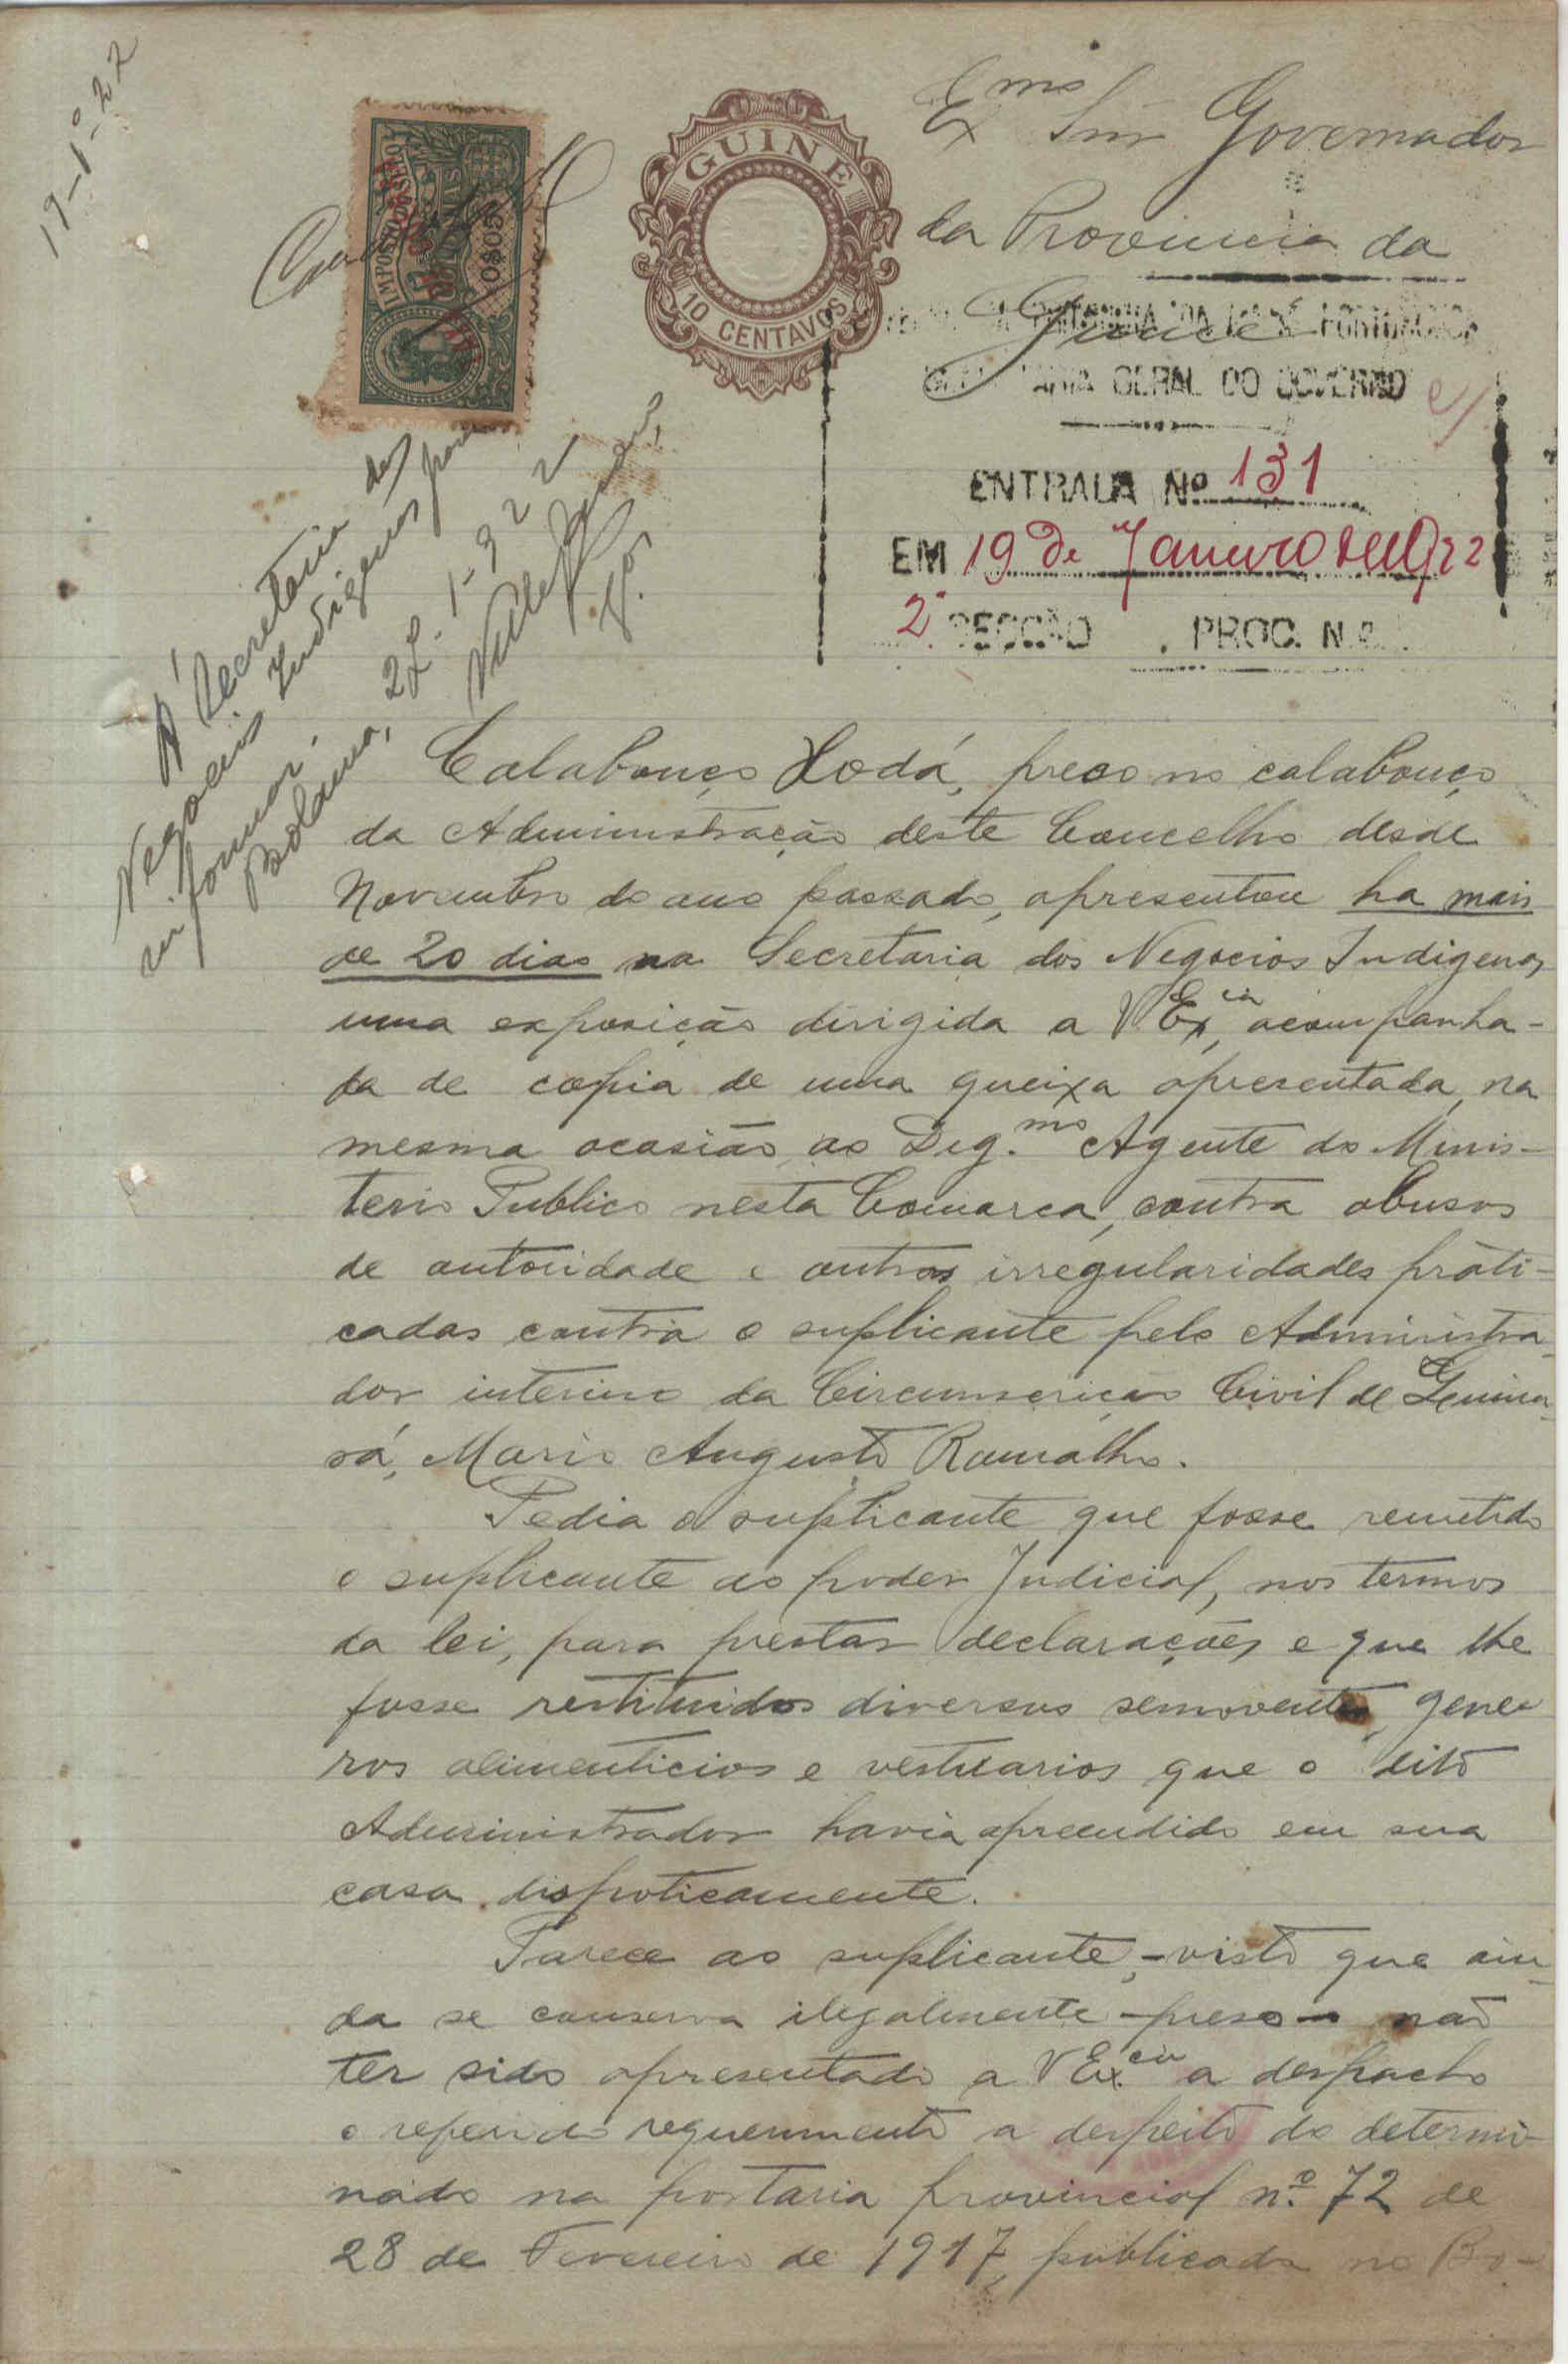 19-1º-22
IMPOSTO DO SELO
0$05
GUINÉ
10 CENTAVOS
Exmo Snr Governador
da Provincia da
Guiné
PORTUGUESA
GERAL DO GOVERNO
ENTRADA Nº 131
EM 19 de Janeiro de 1922
2ª SECÇÃO PROC. N.º
Á Secretaria dos
Negocios Indigenas para
informar.
Bolama, 22-1-922
Calabouço Dodá, preso no calabouço
da Administração deste Concelho desde
Novembro do ano passado, apresentou ha mais
de 20 dias na Secretaria dos Negocios Indigenas
uma exposição dirigida a V. Excia, acompanha-
da de copia de uma queixa apresentada, na
mesma ocasião, ao Dig.mo Agente do Minis-
terio Publico nesta Comarca, contra abusos
de autoridade e outras irregularidades prati-
cadas contra o suplicante pelo Administra-
dor interino da Circumscrição Civil de Quina-
rá, Mario Augusto Ramalho.
Pedia o suplicante que fosse remetido
o suplicante ao poder Judicial, nos termos
da lei, para prestar declarações e que lhe
fosse restituidos diversos semoventes, gene-
ros alimenticios e vestuarios que o dito
Administrador havia apreendido em sua
casa dispoticamente.
Parece ao suplicante, - visto que ain-
da se conserva ilegalmente preso - não
ter sido apresentado a V. Ex.cia a despacho
o referido requerimento a despeito do determi-
nado na portaria provincial n.º 72 de
28 de Fevereiro de 1917, publicada no Bo-